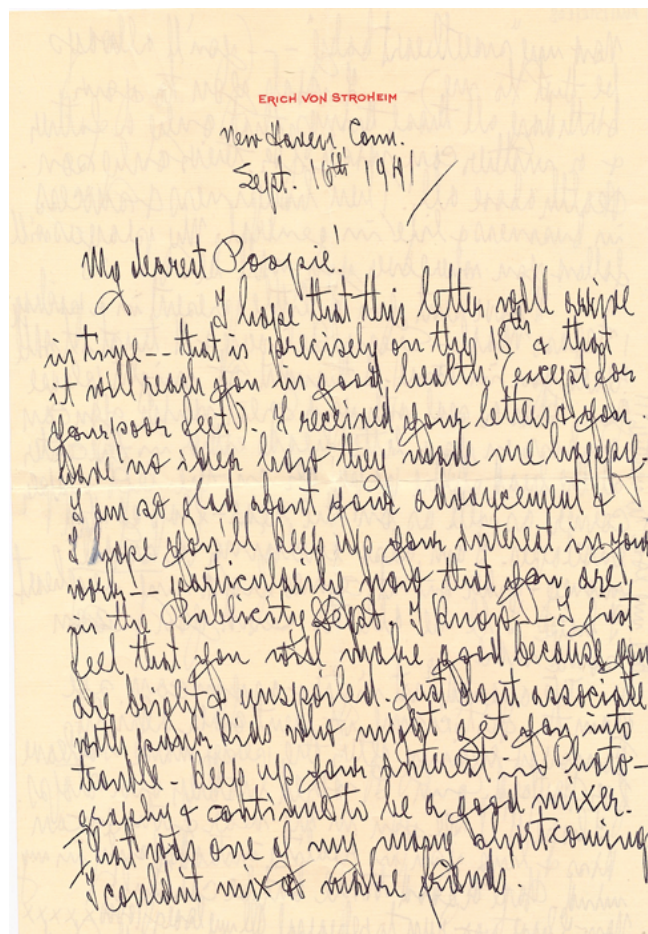 ERICH VON STROHEIM
New Haven, Conn.
Sept. 16th 1941
My dearest Poopie!
I hope that this letter will arrive
in time -- that is precisely on the 18th & that
it will reach you in good health (except for
your poor feet). I received your letters & you
have no idea how they made me happy.
I am so glad about your advancement &
I hope you'll keep up your interest in your
work -- particularily now that you are
in the Publicity Dept. I know -- I just
feel that you will make good because you
are bright & unspoiled. Just dont associate
with punk kids who might get you into
trouble - keep up your interest in Photo-
graphy & continue to be a good mixer.
That was one of my many shortcoming
I couldnt mix & make friends